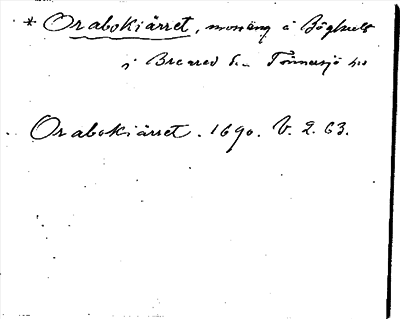 * Orabokiärret, mosäng å Böghult
i Breared sn Tönnersjö hd
Orabokiärret. 1690. V. 2. 63.